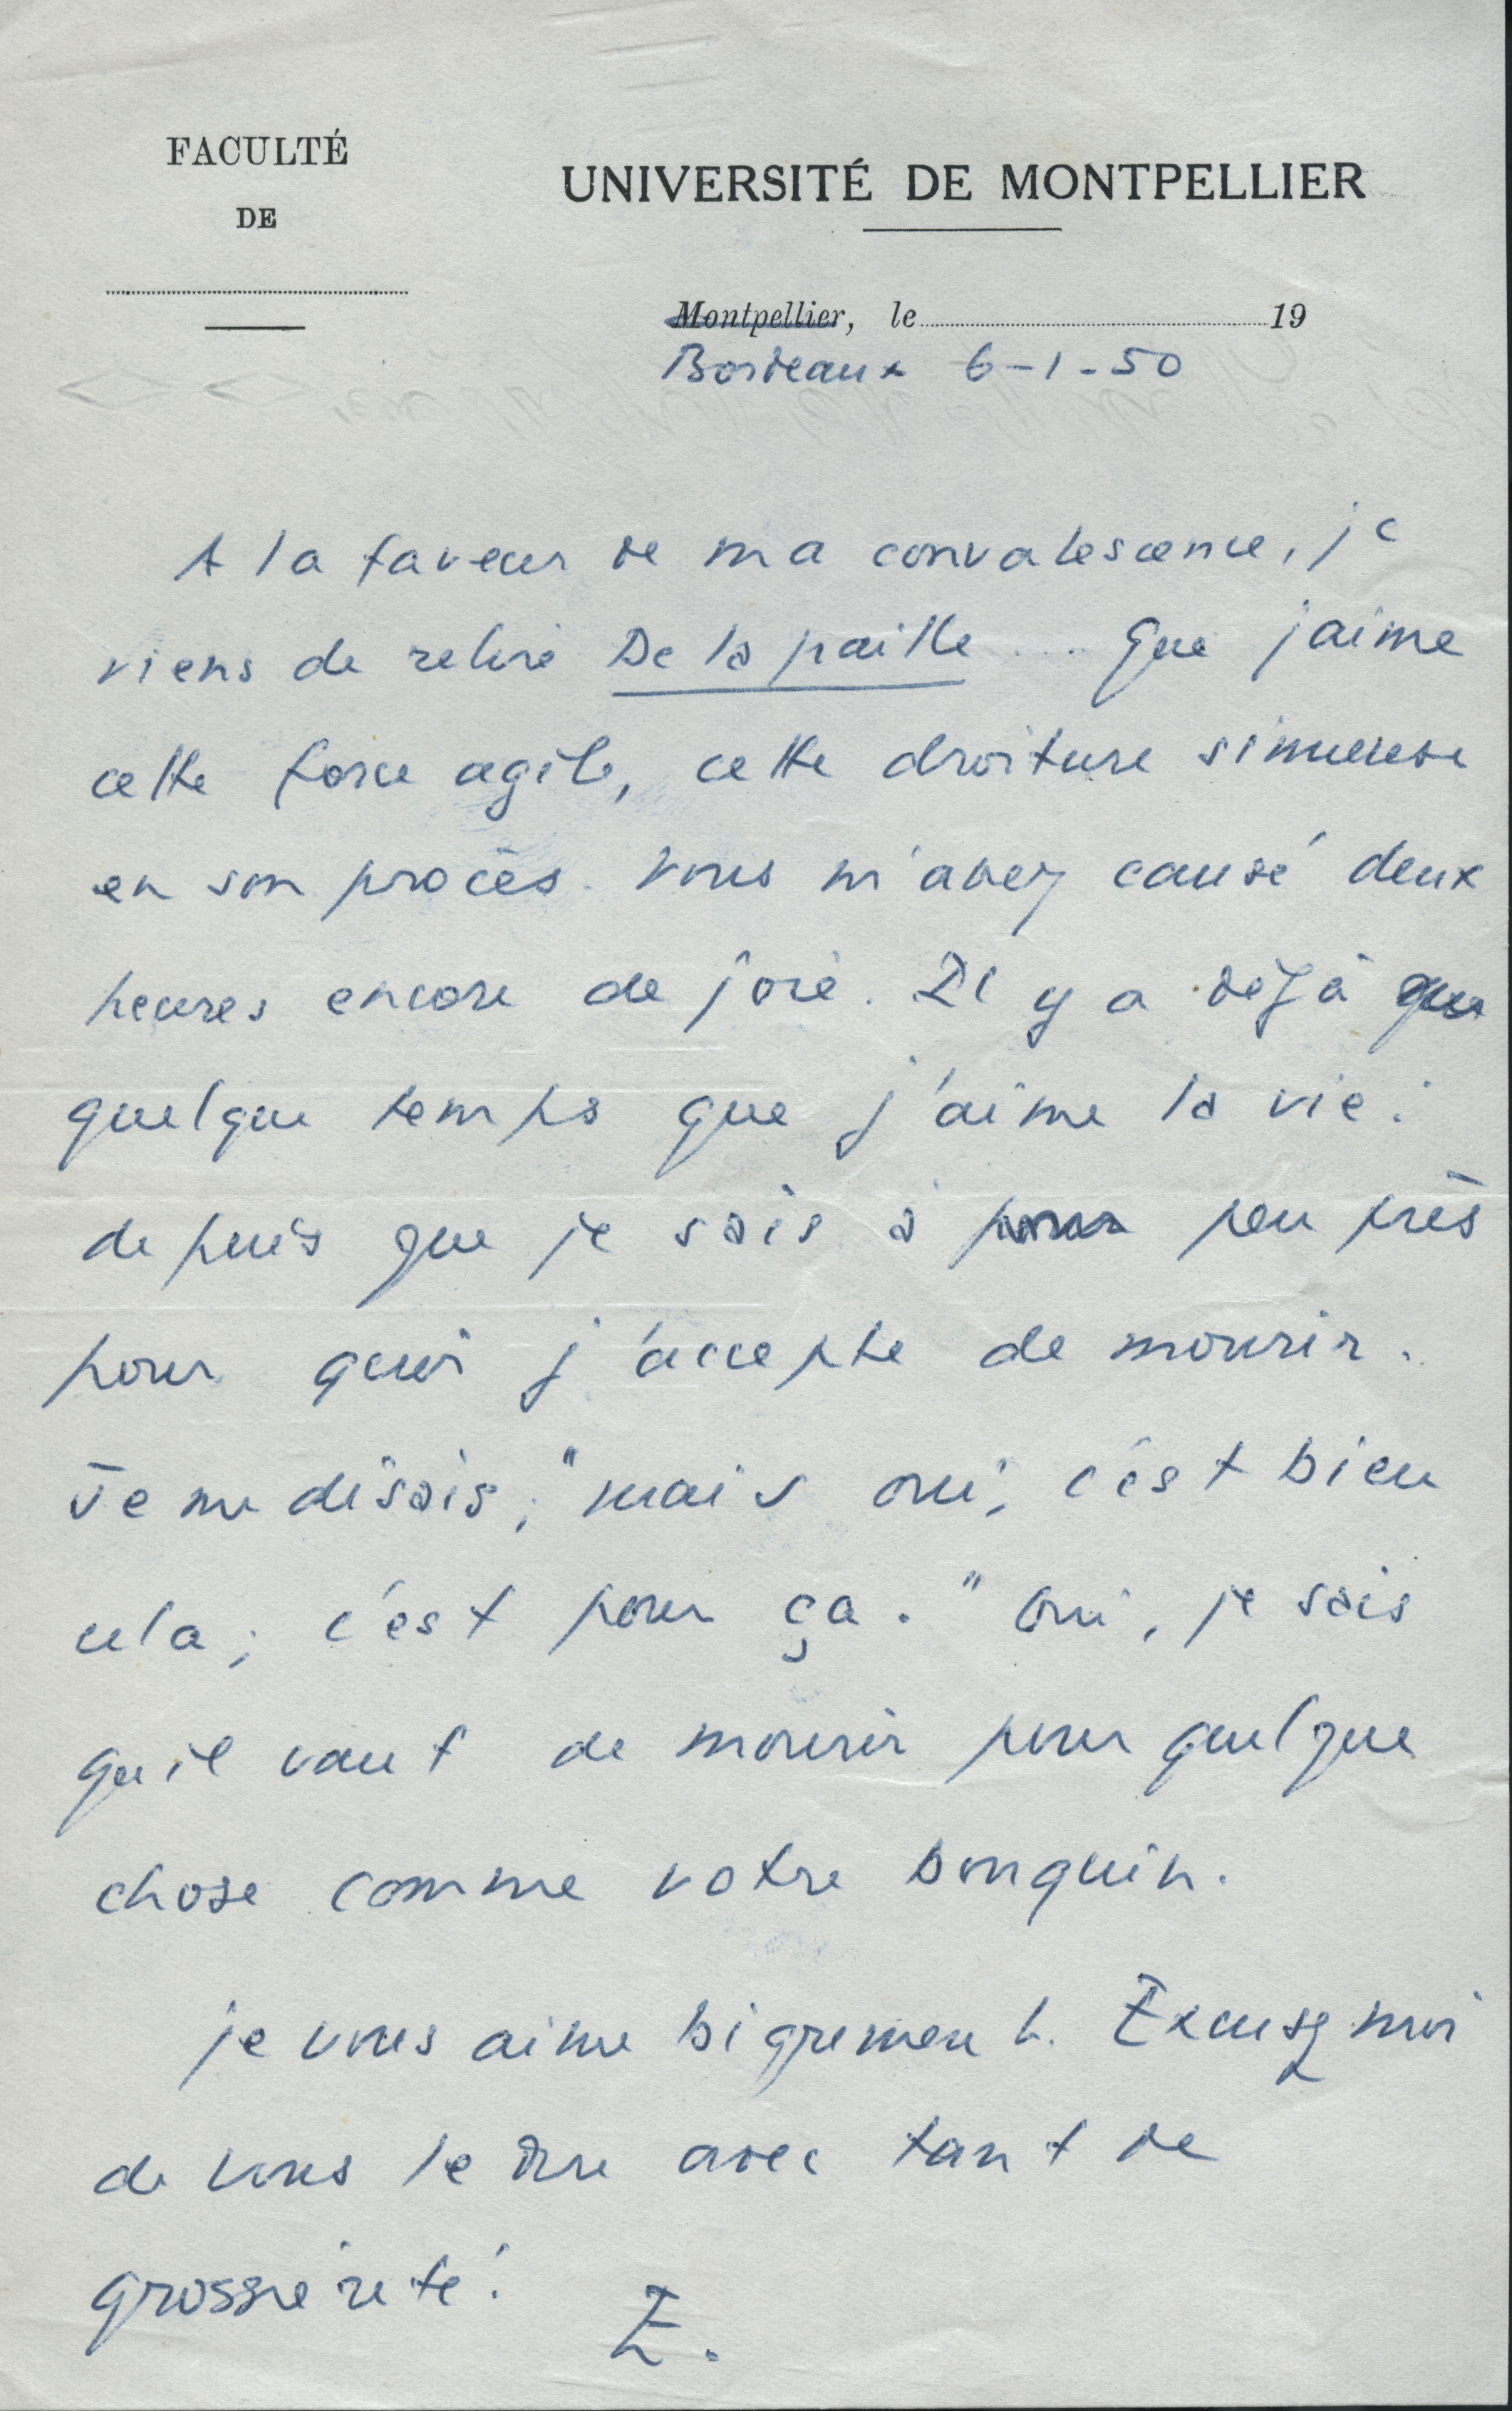 FACULTÉ
DE
UNIVERSITÉ DE MONTPELLIER
Montpellier, le 19
Bordeaux 6-1-50
A la faveur de ma convalescence, je
viens de relire De la paille ... Que j'aime
cette force agile, cette droiture sinueuse
en son procès. Vous m'avez causé deux
heures encore de joie. Il y a déjà qu
quelque temps que j'aime la vie :
depuis que je sais à pour peu près
pour quoi j'accepte de mourir.
Je me disais ; "mais oui, c'est bien
cela ; c'est pour ça." Oui, je sais
qu'il vaut de mourir pour quelque
chose comme votre bouquin.
je vous aime bigrement. Excusez moi
de vous le dire avec tant de
grossièreté !
E.